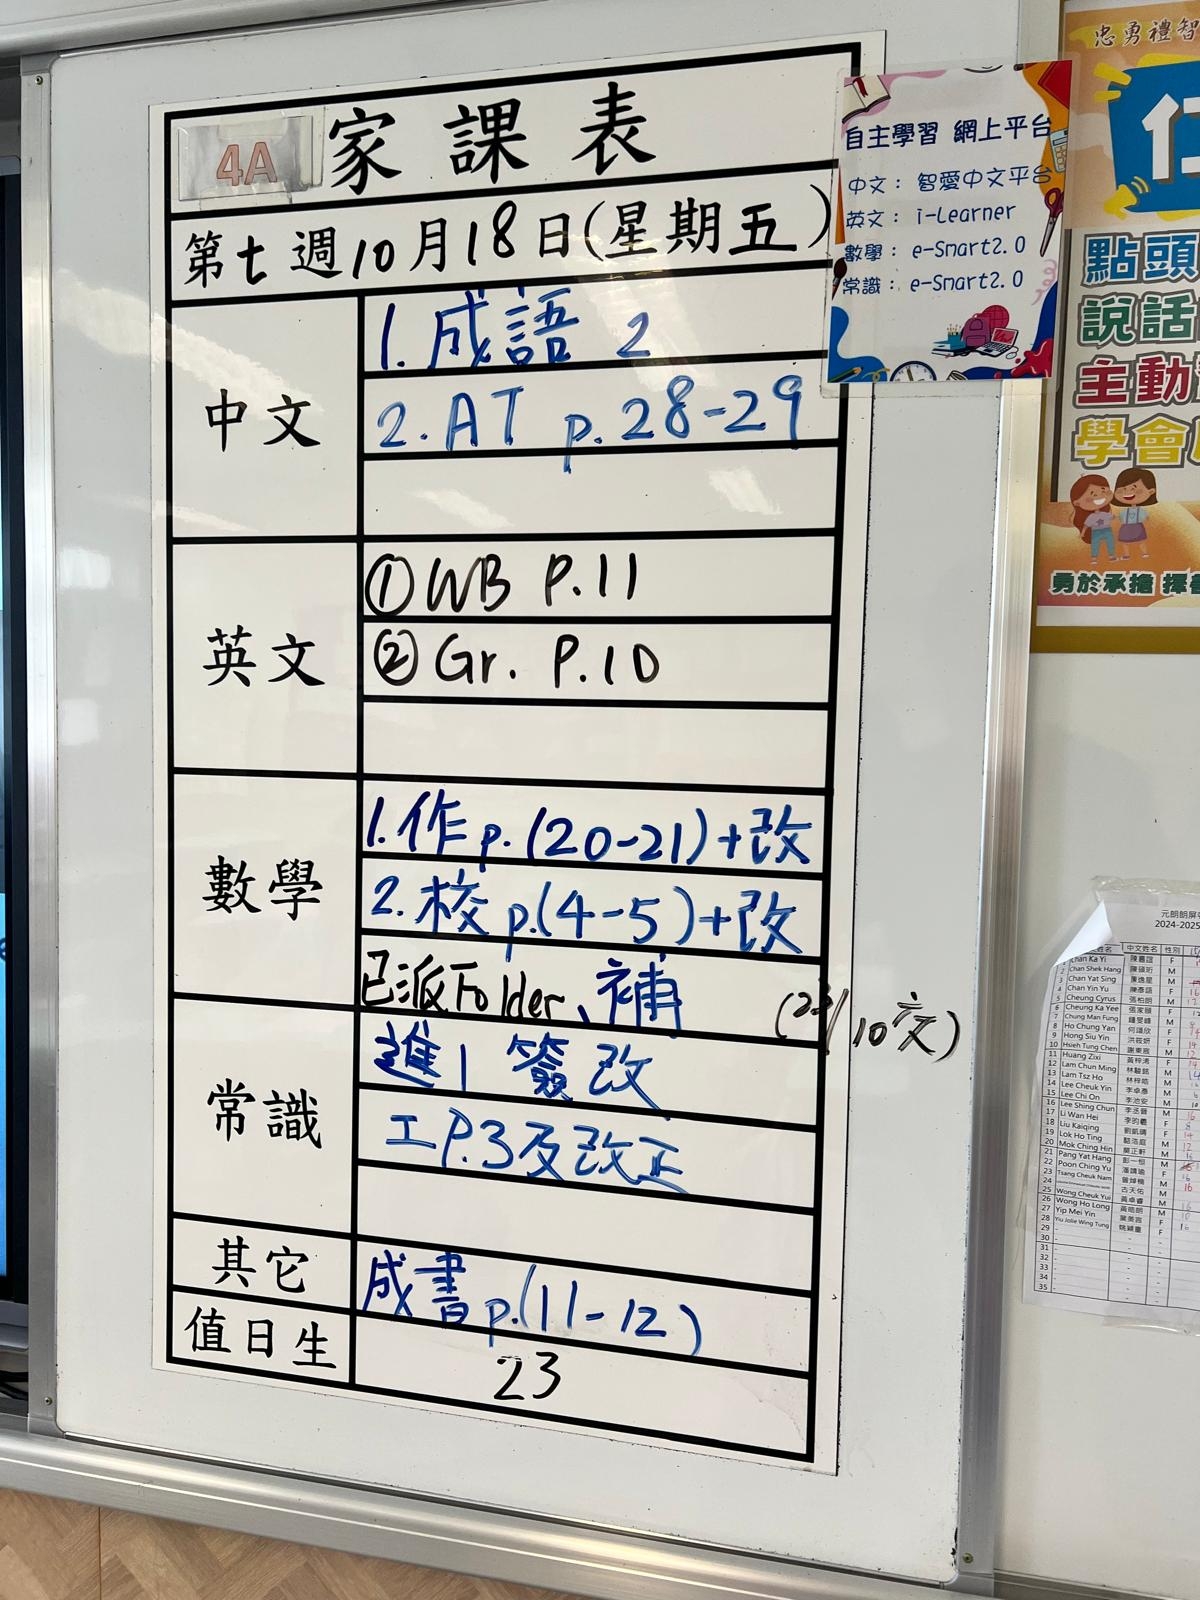 4A 家課表
第七週10月18日(星期五)
中文
1. 成語 2
2. AT p.28-29
英文
① WB P.11
② Gr. P.10
數學
1. 作 p.(20-21)+改
2. 校 p.(4-5)+改
已派Folder、補
(23/10交)
常識
進1 簽改
工P.3及改正
其它
成書p.(11-12)
值日生
23
自主學習 網上平台
中文： 智愛中文平台
英文： i-Learner
數學： e-Smart2.0
常識： e-Smart2.0
忠勇禮智
點頭
說話
主動
學會
勇於承擔
元朗朗屏
2024-2025
中文姓名 性別
1 Chan Ka Yi F
2 Chan Shek Hang M
3 Chan Yat Sing M
4 Chan Yin Yu F
5 Cheung Cyrus 張柏朗 M
6 Cheung Ka Yee 張家頤 F
7 Chung Man Fung M
8 Ho Chung Yan 何頌欣 F
9 Hong Siu Yin F
10 Hsieh Tung Chen M
11 Huang Zixi F
12 Lam Chun Ming 林駿銘 M
13 Lam Tsz Ho 林梓皓 M
14 Lee Cheuk Yin 李卓彥 M
15 Lee Chi On 李池安 M
16 Lee Shing Chun M
17 Li Wan Hei F
18 Liu Kaiqing 劉凱晴 F
19 Lok Ho Ting 駱浩庭 M
20 Mok Ching Hin 莫正軒 M
21 Pang Yat Hang 彭一恒 M
22 Poon Ching Yu 潘靖瑜 F
23 Tsang Cheuk Nam 曾焯楠 M
24 古天佑 M
25 Wong Cheuk Yui 黃卓睿 M
26 Wong Ho Long 黃皓朗 M
27 Yip Mei Yin 葉美言 F
28 Yiu Jolie Wing Tung 姚穎童 F
29
30
31
32
33
34
35